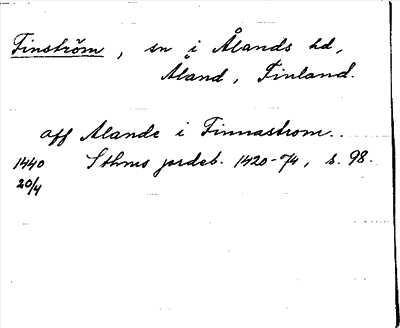 Finström, sn i Ålands hd,
Åland, Finland.
aff Alande i Finnastrom..
1440 Sthms jordeb. 1420-74, s. 98.
20/4